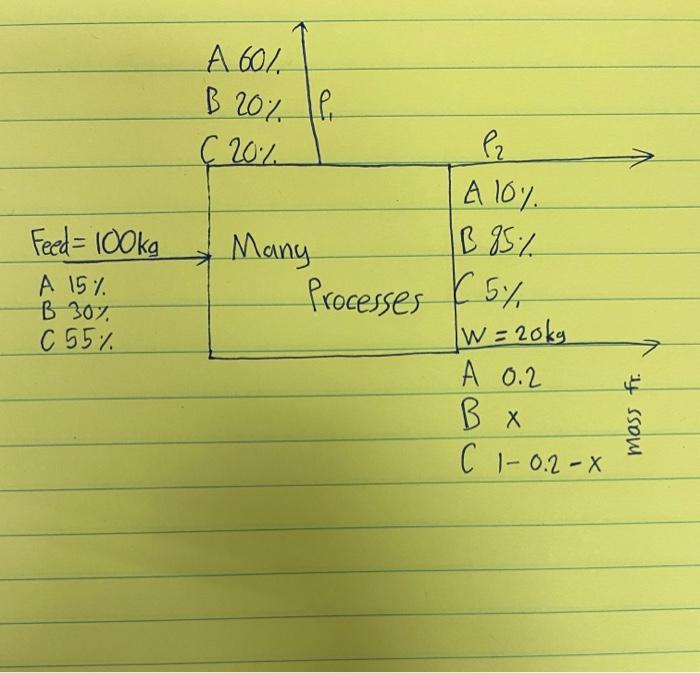 A 60%
B 20%
C 20%
P₁
P₂
Feed = 100kg
A 15%
B 30%
C 55%
Many
Processes
A 10%
B 85%
C 5%
W = 20kg
A 0.2
B x
C 1-0.2-x
mass fr.